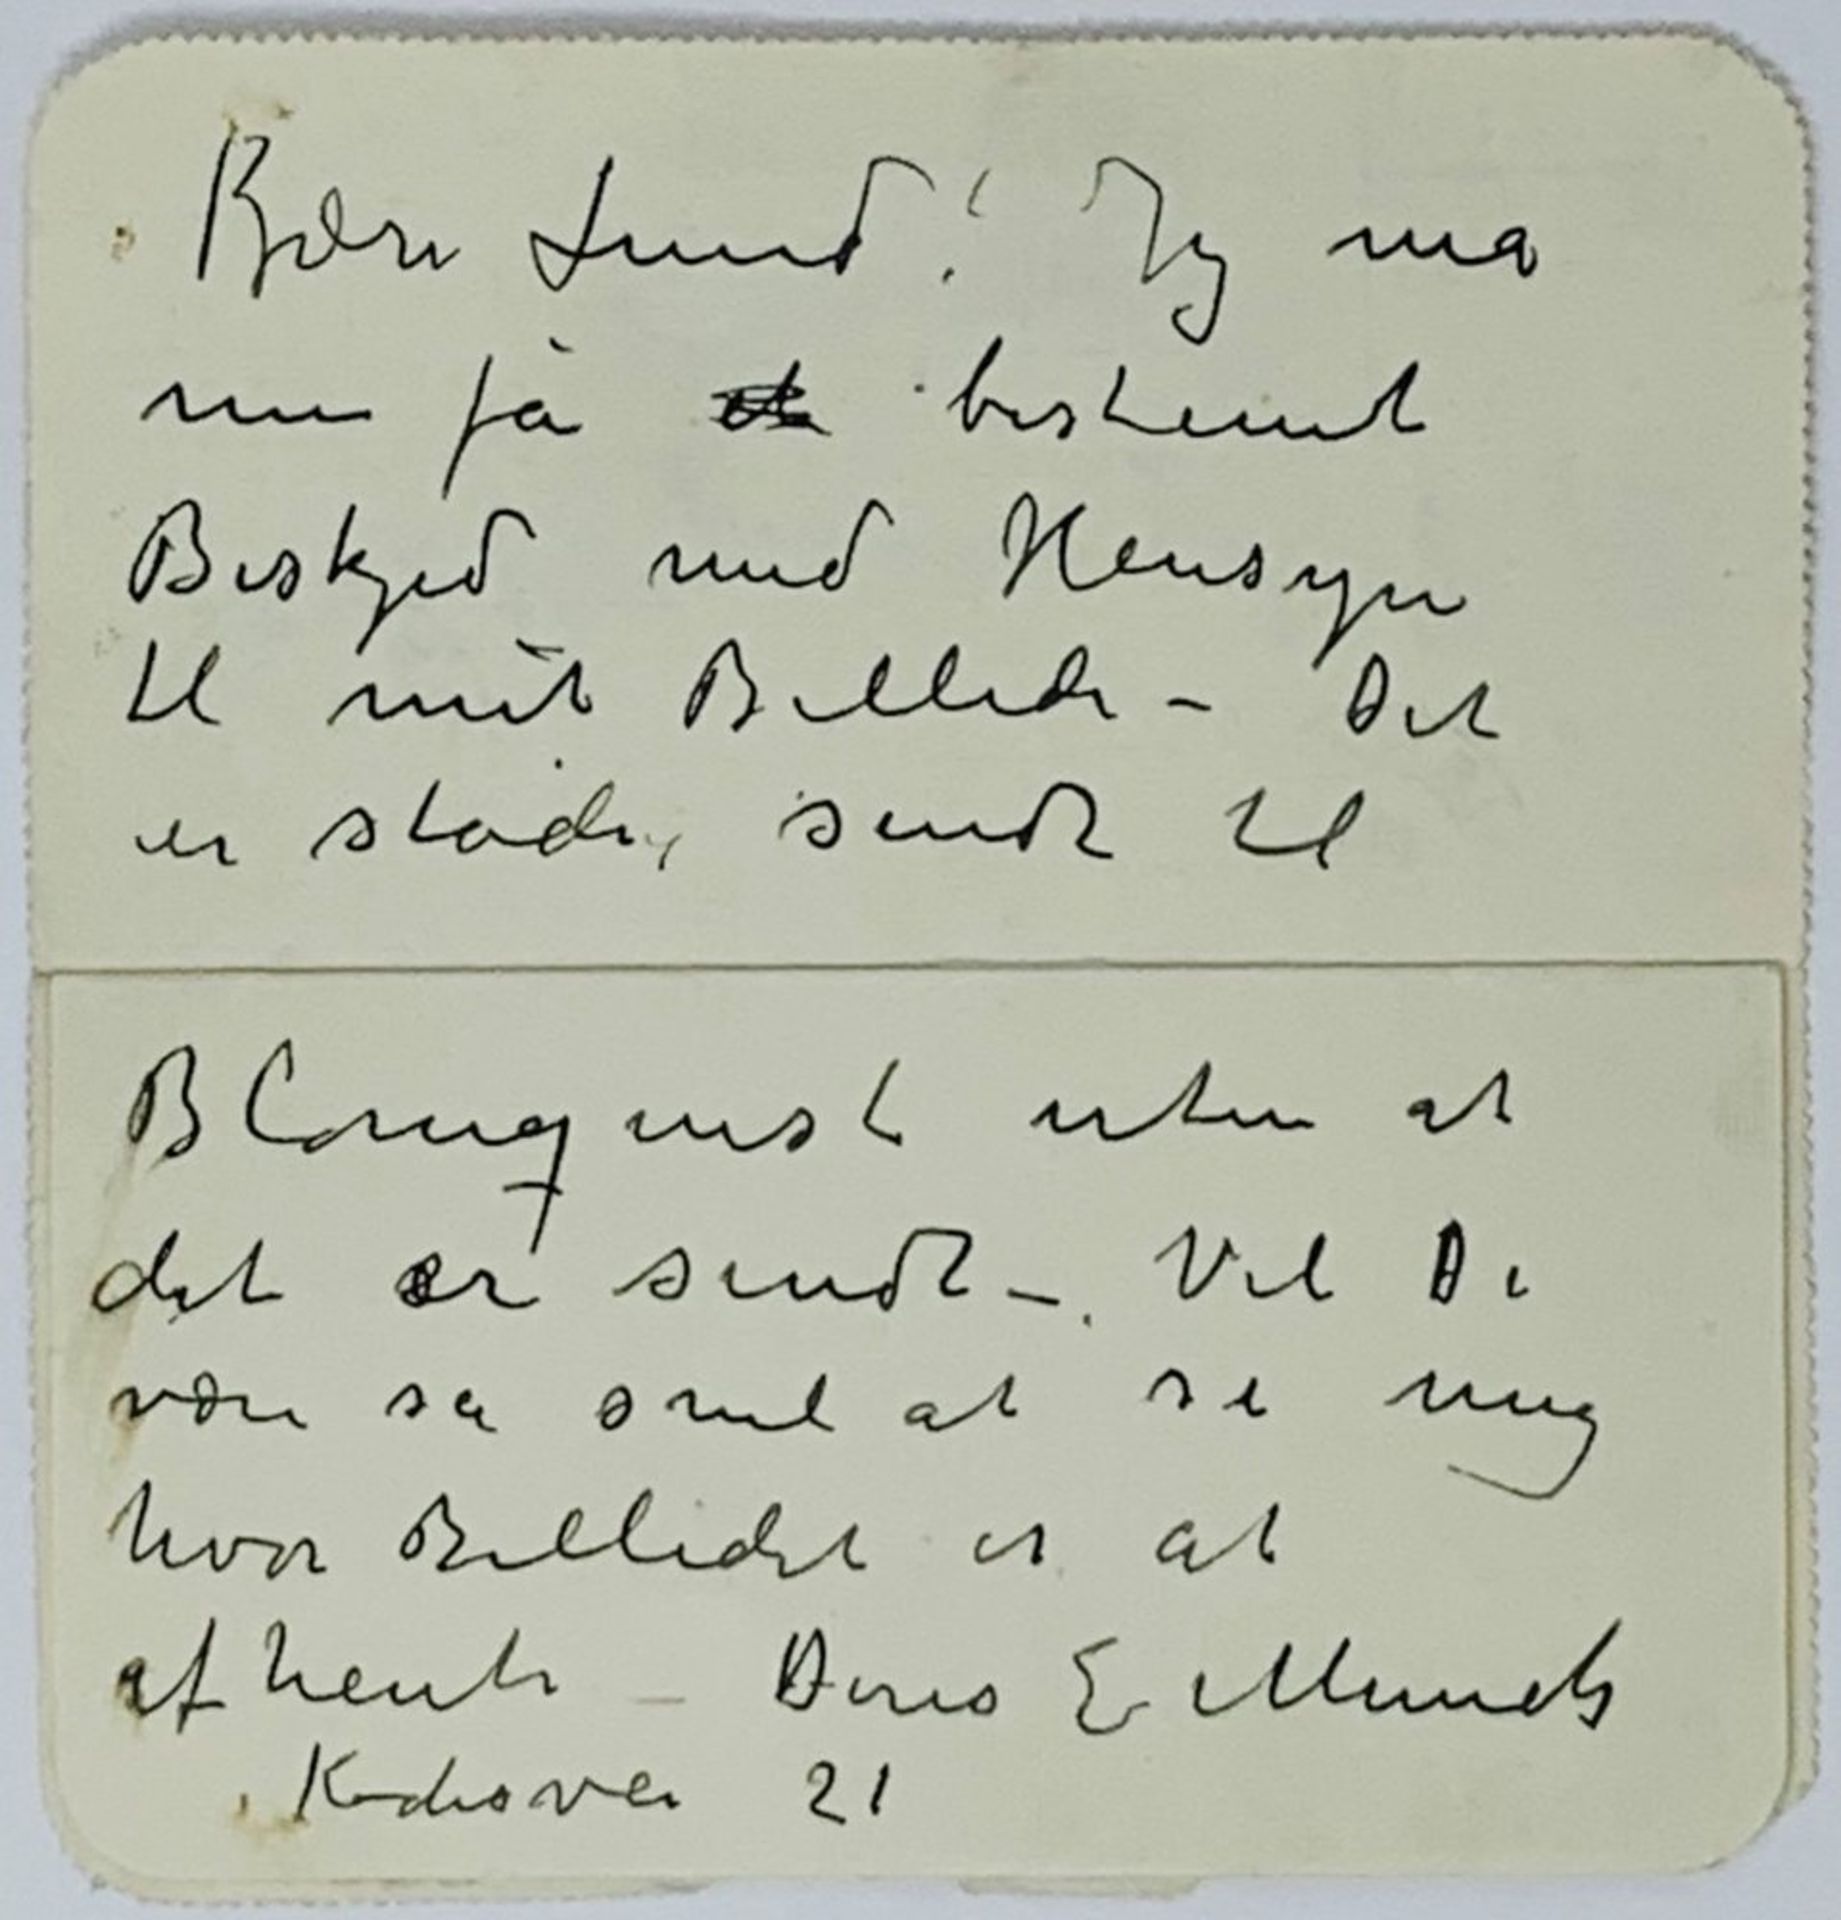 Kjære Lund! Jeg må
nu få bestemt
Beskjed med Hensyn
til mit Billede – Det
er stadig sendt til
Blomqvist uten at
det er sendt –. Vil De
være så snil at si mig
hvor Billedet er at
afhente – Deres E Munch
21